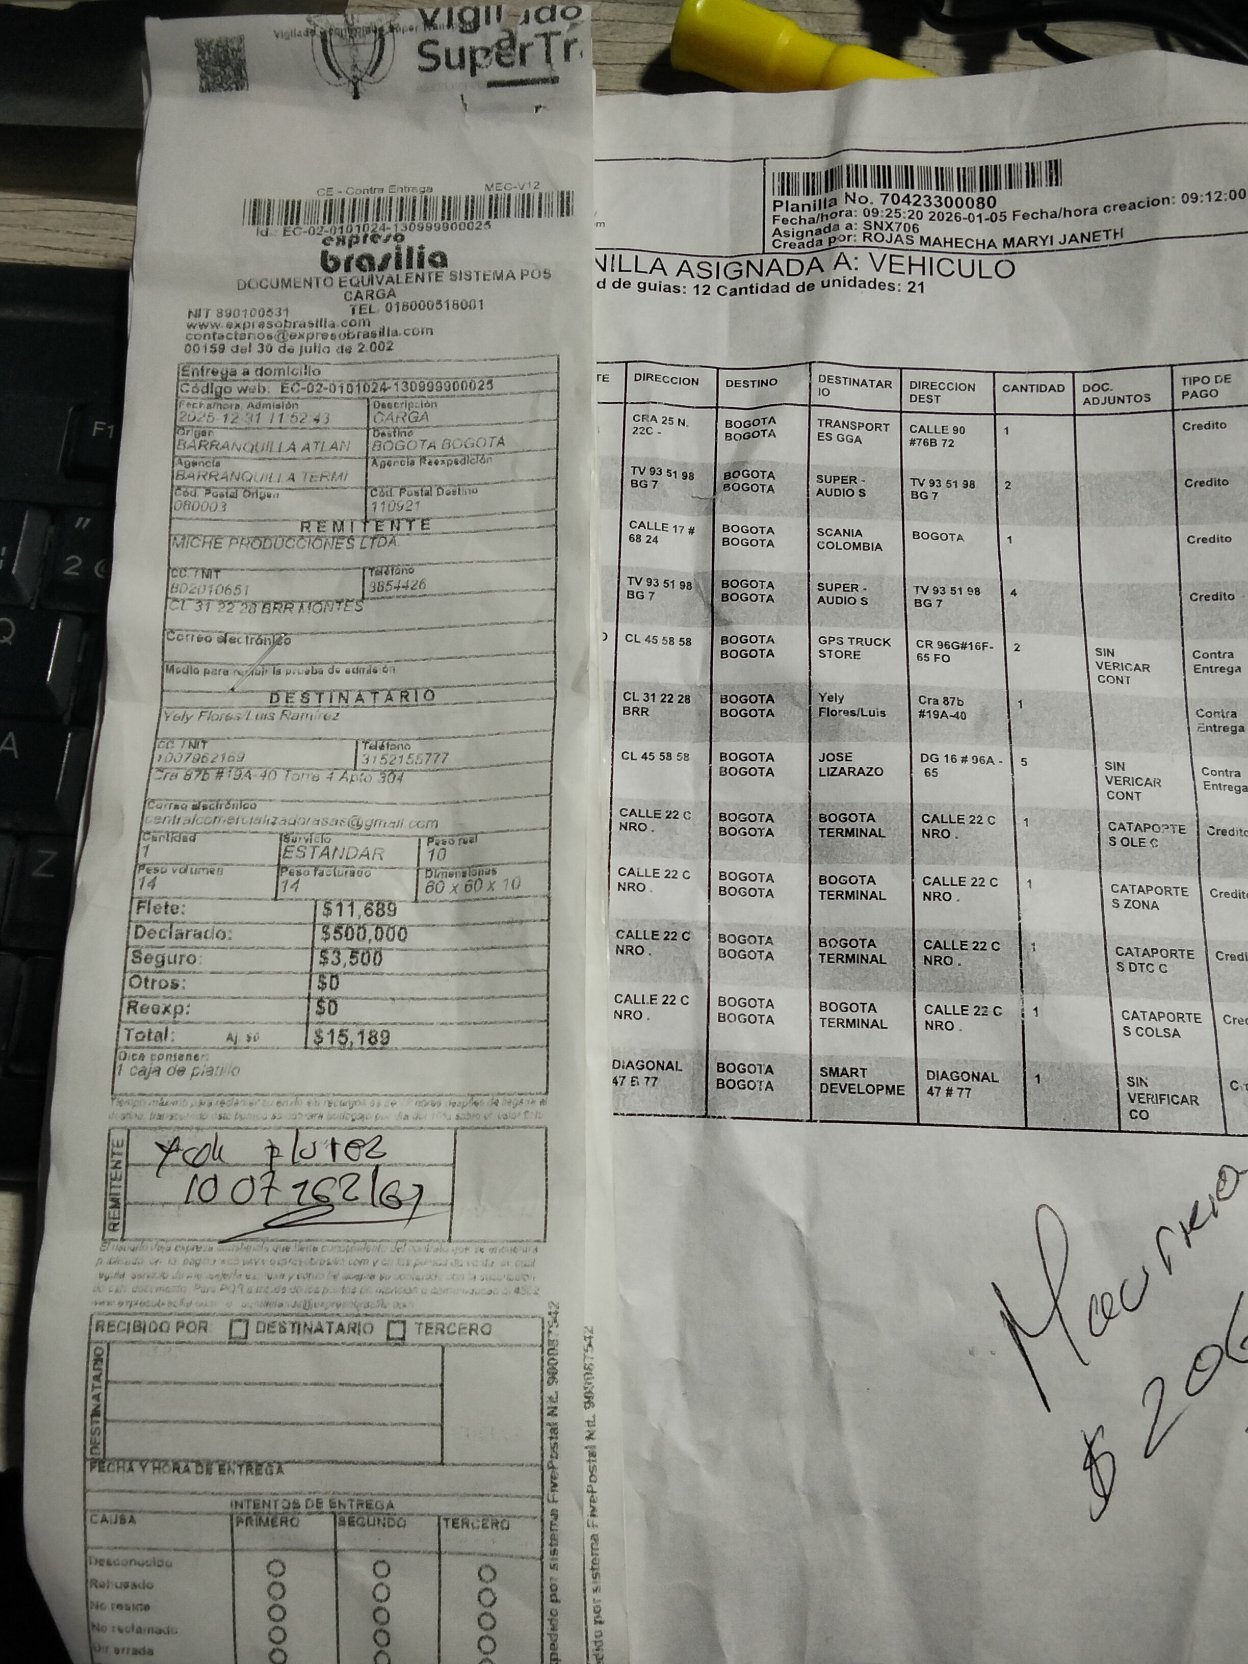 Vigilado
SuperTr
CE - Contra Entrega MEC-V12
Id.: EC-02-0101024-130999900025
expreso
brasilia
DOCUMENTO EQUIVALENTE SISTEMA POS
CARGA
NIT 890100531 TEL. 018000518001
www.expresobrasilia.com
contactenos@expresobrasilia.com
00159 del 30 de julio de 2.002
Entrega a domicilio
Código web: EC-02-0101024-130999900025
Fecha/hora Admisión Descripción
2025-12-31 11:52:43 CARGA
Origen Destino
BARRANQUILLA ATLAN BOGOTA BOGOTA
Agencia Agencia Reexpedición
BARRANQUILLA TERMI
Cód. Postal Origen Cód. Postal Destino
080003 110921
REMITENTE
MICHE PRODUCCIONES LTDA
CC / NIT Teléfono
802010651 3854426
CL 31 22 28 BRR MONTES
Correo electrónico
Medio para recibir la prueba de admisión
DESTINATARIO
Yely Flores/Luis Ramirez
CC / NIT Teléfono
1007962169 3152155777
Cra 87b #19A-40 Torre 4 Apto 304
Correo electrónico
centralcomercializadorasas@gmail.com
Cantidad Servicio Peso real
1 ESTANDAR 10
Peso volumen Peso facturado Dimensiones
14 14 60 x 60 x 10
Flete: $11,689
Declarado: $500,000
Seguro: $3,500
Otros: $0
Reexp: $0
Total: Aj. $0 $15,189
Dice contener:
1 caja de platillo
REMITENTE
RECIBIDO POR: DESTINATARIO TERCERO
DESTINATARIO
FECHA Y HORA DE ENTREGA
INTENTOS DE ENTREGA
CAUSA PRIMERO SEGUNDO TERCERO
Desconocido
Rehusado
No reside
No reclamado
Dir errada
pedido por sistema FivePostal Nit. 900087542
dido por sistema FivePostal Nit. 900087542
Planilla No. 70423300080
Fecha/hora: 09:25:20 2026-01-05 Fecha/hora creacion: 09:12:00
Asignada a: SNX706
Creada por: ROJAS MAHECHA MARYI JANETH
NILLA ASIGNADA A: VEHICULO
d de guias: 12 Cantidad de unidades: 21
TE DIRECCION DESTINO DESTINATARIO DIRECCION DEST CANTIDAD DOC. ADJUNTOS TIPO DE PAGO
CRA 25 N. 22C - BOGOTA BOGOTA TRANSPORTES GGA CALLE 90 #76B 72 1 Credito
TV 93 51 98 BG 7 BOGOTA BOGOTA SUPER - AUDIO S TV 93 51 98 BG 7 2 Credito
CALLE 17 # 68 24 BOGOTA BOGOTA SCANIA COLOMBIA BOGOTA 1 Credito
TV 93 51 98 BG 7 BOGOTA BOGOTA SUPER - AUDIO S TV 93 51 98 BG 7 4 Credito
CL 45 58 58 BOGOTA BOGOTA GPS TRUCK STORE CR 96G#16F-65 FO 2 SIN VERICAR CONT Contra Entrega
CL 31 22 28 BRR BOGOTA BOGOTA Yely Flores/Luis Cra 87b #19A-40 1 Contra Entrega
CL 45 58 58 BOGOTA BOGOTA JOSE LIZARAZO DG 16 # 96A - 65 5 SIN VERICAR CONT Contra Entrega
CALLE 22 C NRO . BOGOTA BOGOTA BOGOTA TERMINAL CALLE 22 C NRO . 1 CATAPORTES OLE C Credito
CALLE 22 C NRO . BOGOTA BOGOTA BOGOTA TERMINAL CALLE 22 C NRO . 1 CATAPORTES ZONA Credito
CALLE 22 C NRO . BOGOTA BOGOTA BOGOTA TERMINAL CALLE 22 C NRO . 1 CATAPORTES DTC C Credi
CALLE 22 C NRO . BOGOTA BOGOTA BOGOTA TERMINAL CALLE 22 C NRO . 1 CATAPORTES COLSA Cre
DIAGONAL 47 B 77 BOGOTA BOGOTA SMART DEVELOPME DIAGONAL 47 # 77 1 SIN VERIFICAR CO
Mauricio
$ 206